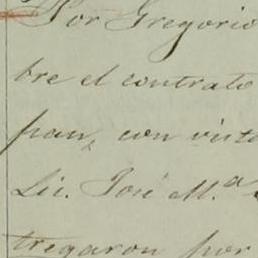 Por Gregorio
bre el contrato
pan, con vist
Lic. José M.ª
tregaron por